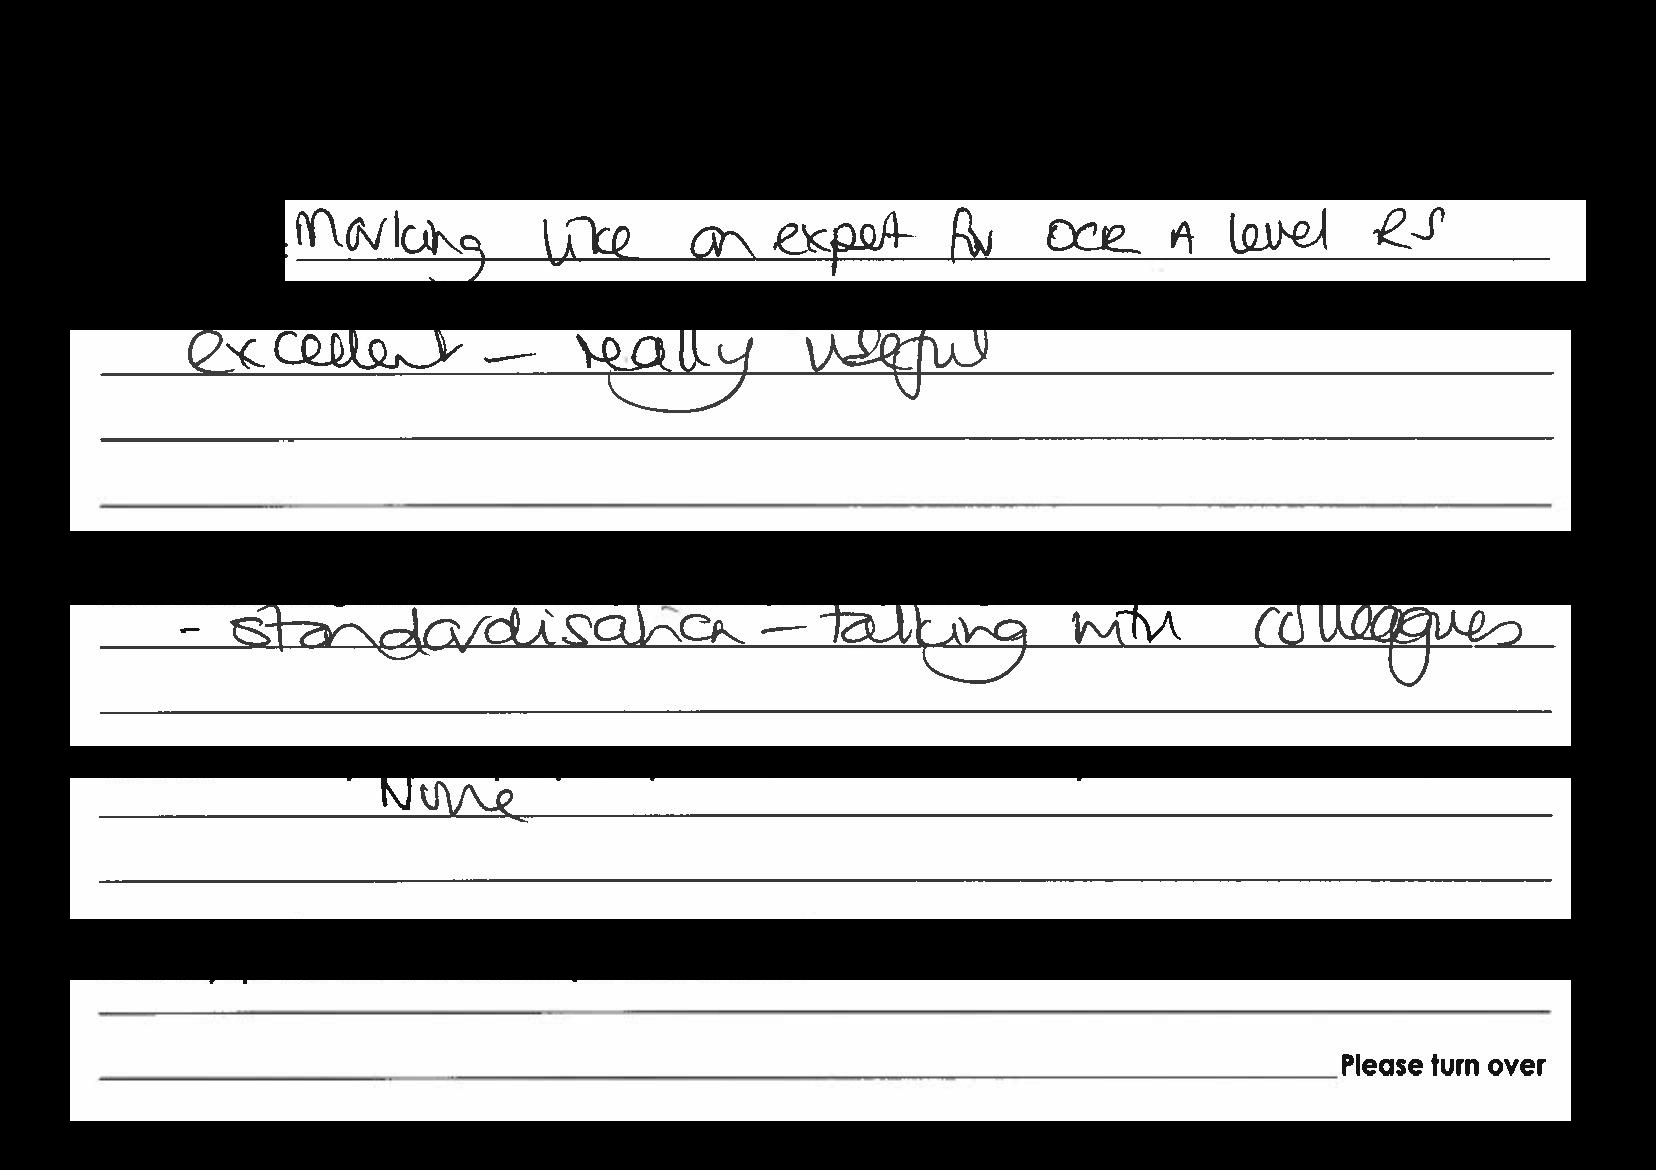 Marking like an expert for OCR A level RS
excellent – really useful
- standardisation – talking with colleagues
None
Please turn over